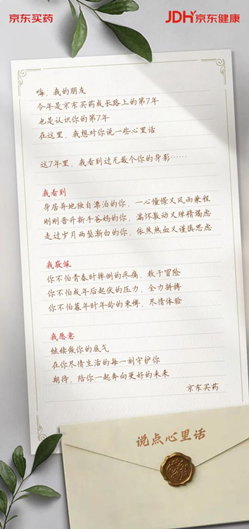 京东买药
JDH 京东健康
嗨,我的朋友
今年是京东买药成长路上的第7年
也是认识你的第7年
在这里,我想对你说一些心里话
这7年里,我看到过无数个你的身影……
我看到
身居异地独自漂泊的你,一心憧憬又风雨兼程
刚刚晋升新手爸妈的你,满怀激动又殚精竭虑
走过岁月两鬓渐白的你,依然热血又谨慎思虑
我敬佩
你不怕青春时摔倒的疼痛,敢于冒险
你不怕成年后起伏的压力,全力拼搏
你不怕暮年时年龄的束缚,尽情体验
我愿意
继续做你的底气
在你尽情生活的每一刻守护你
期待,陪你一起奔向更好的未来
京东买药
说点心里话